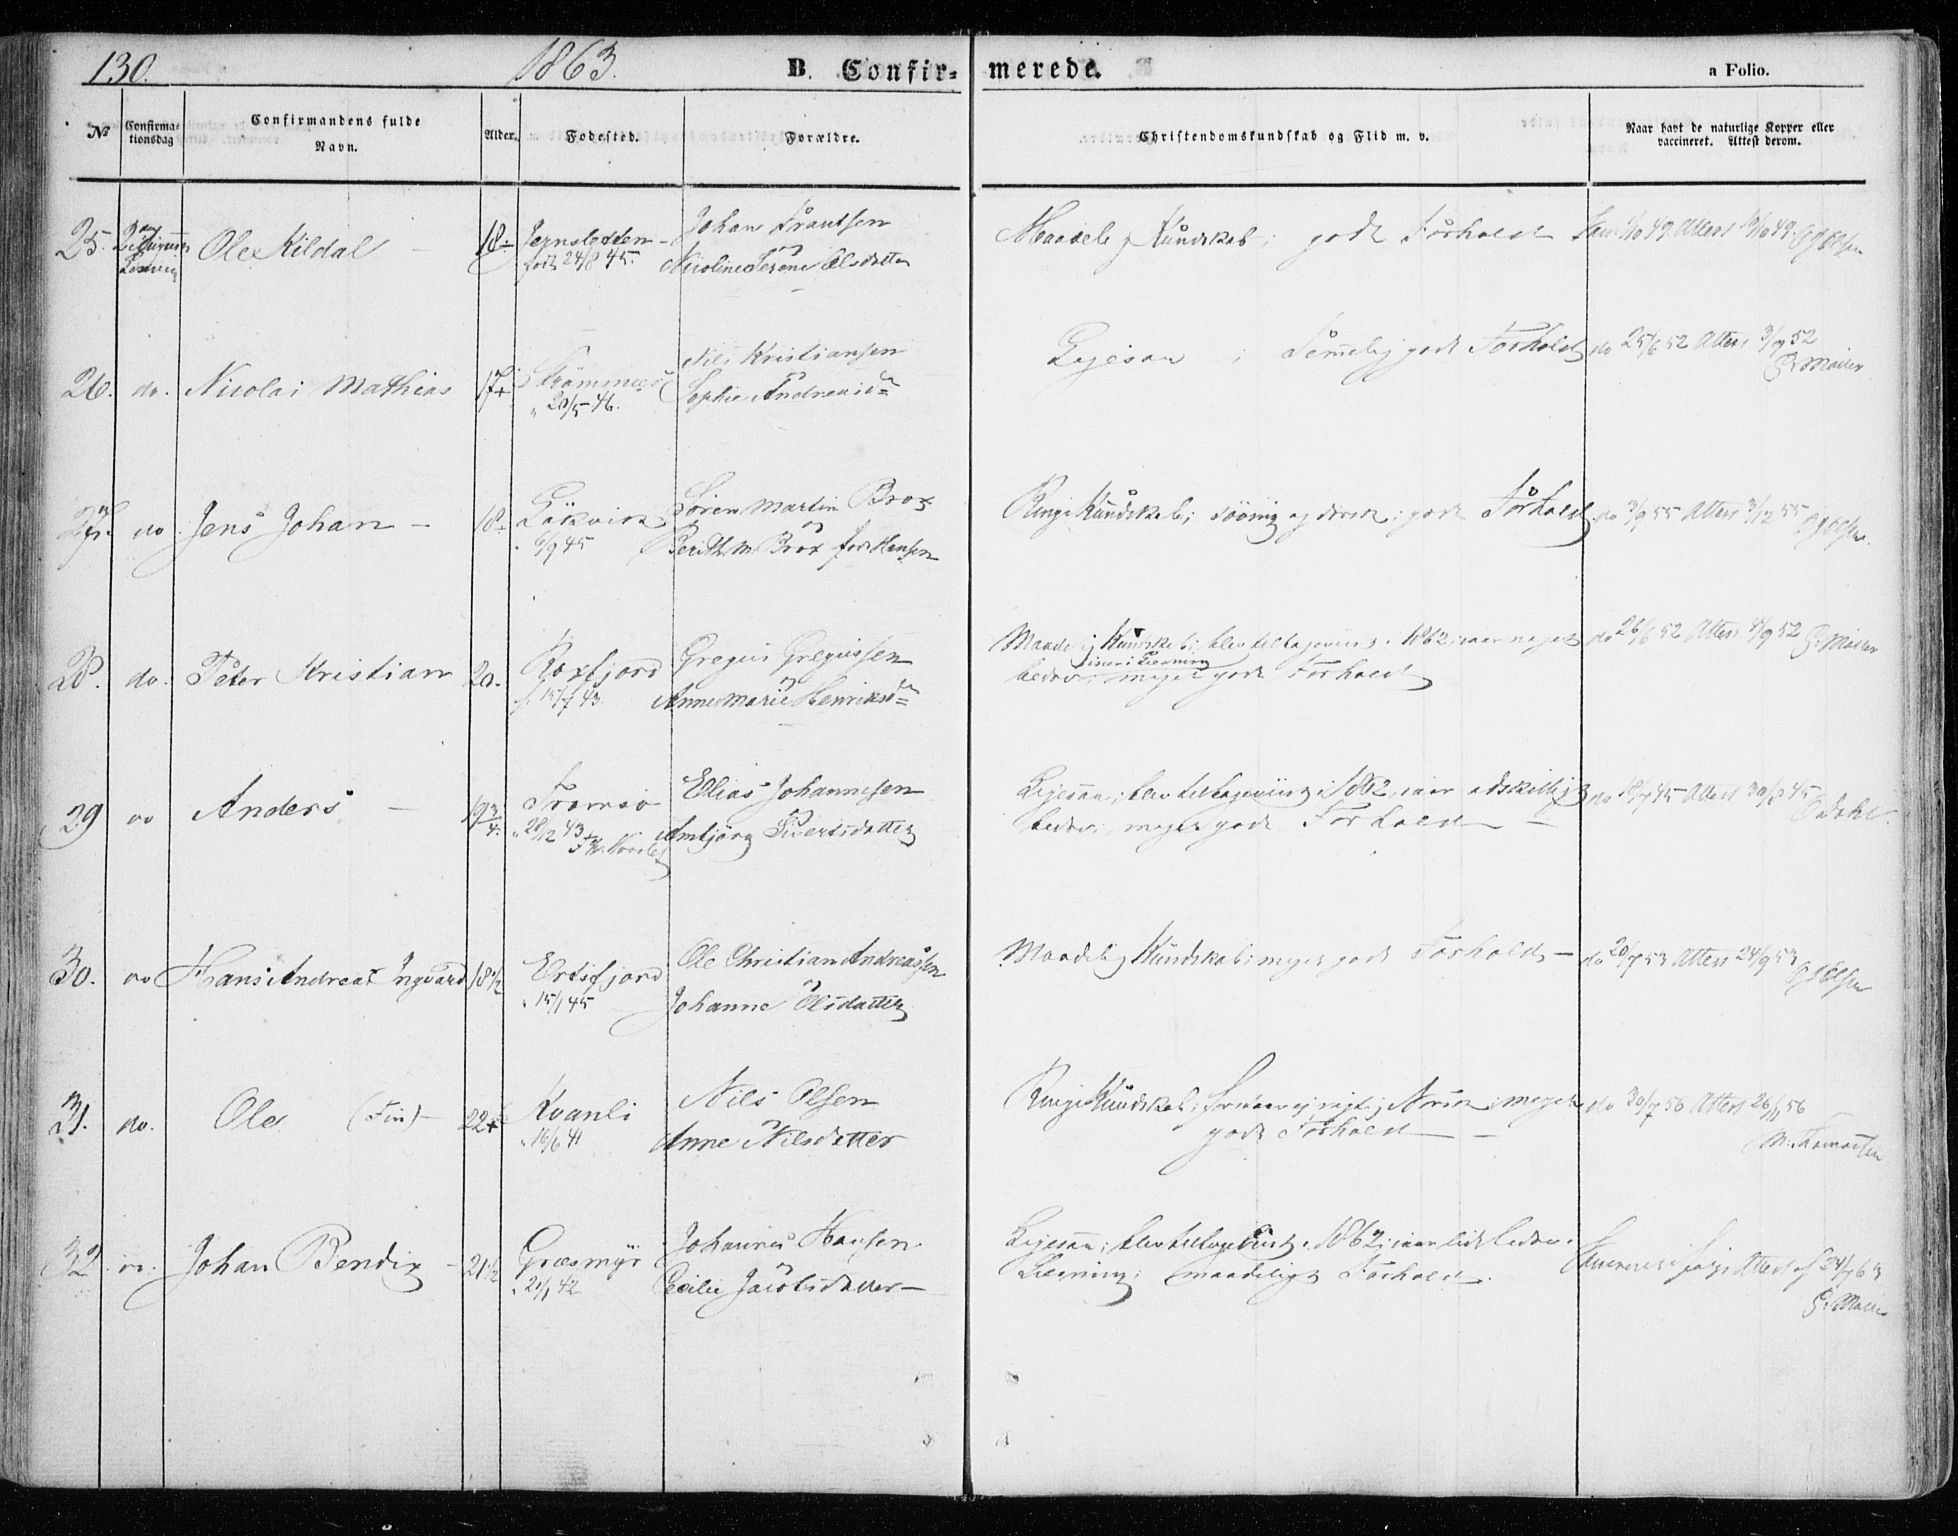 130. 1863. B. Confir- merede. a Folio.
No
Confirma-
tionsdag
Confirmandens fulde
Navn.
Alder.
Fødested.
Forældre.
Christendomskundskab og Flid m. v.
Naar havt de naturlige Kopper eller
vaccineret. Attest derom.
25. Ole Kildal — 18
født 24/8 45.
Johan Frantsen
Nicoline Serene Olsdatter
Maadelig Kundskab; godt Forhold
1/10 49 Attest 49.
26. do. Nicolai Mathias 17
Strømmen
" 20/5 46.
Nils Kristiansen
Sophie Andreasd
Ligesaa; godt Forhold
do 25/6 52 Attest 3/9 52
27. do Jens Johan — 18
6/9 45
Søren Martin Brox
Berith M. Brox født Hansen
Ringe Kundskab; døvsig og dorsk; godt Forhold
do 3/9 55 Attest 3/12 55
28. do. Peter Kristian 20.
Roxfjord
f. 15/7 43.
Gregus Gregussen
Anne Marie Henriksd
Maadelig Kundskab; blev tilbageviist i 1862; var noget
bedre; meget godt Forhold
do 26/6 52 Attest 4/9 52
29 do Anders — 19 3/4
Tromsø
" 28/12 43
Elias Johannesen
Ambjørg Sivertsdatter
Ligesaa; blev tilbageviist i 1862, var adskilligt
bedre; meget godt Forhold —
do 18/7 45 Attest 30/8 45
30. do Hans Andreas Ingvard 18 1/2
Ersfjord
" 15/1 45
Ole Christian Andreassen
Johanne Olsdatter
Maadelig Kundskab; meget godt Forhold —
do 20/7 53 Attest 24/9 53
31. do. Ole (Fin) — 22
Kvanli
" 16/6 41
Nils Olsen
Anne Nilsdatter
Ringe Kundskab; forstaar ej rigtig Norsk; meget
godt Forhold —
do 30/7 56 Attest 26/11 56
M. Thomassen
32. do. Johan Bendix — 21 1/2
Græsmyr
" 21/1 42
Johannes Hansen
Cecilie Jacobsdatter —
Ligesaa; blev tilbageviist i 1862; var lidt bedre.
Læsning; maadeligt Forhold.
Vaccineret ifølge Attest af 24/7 63